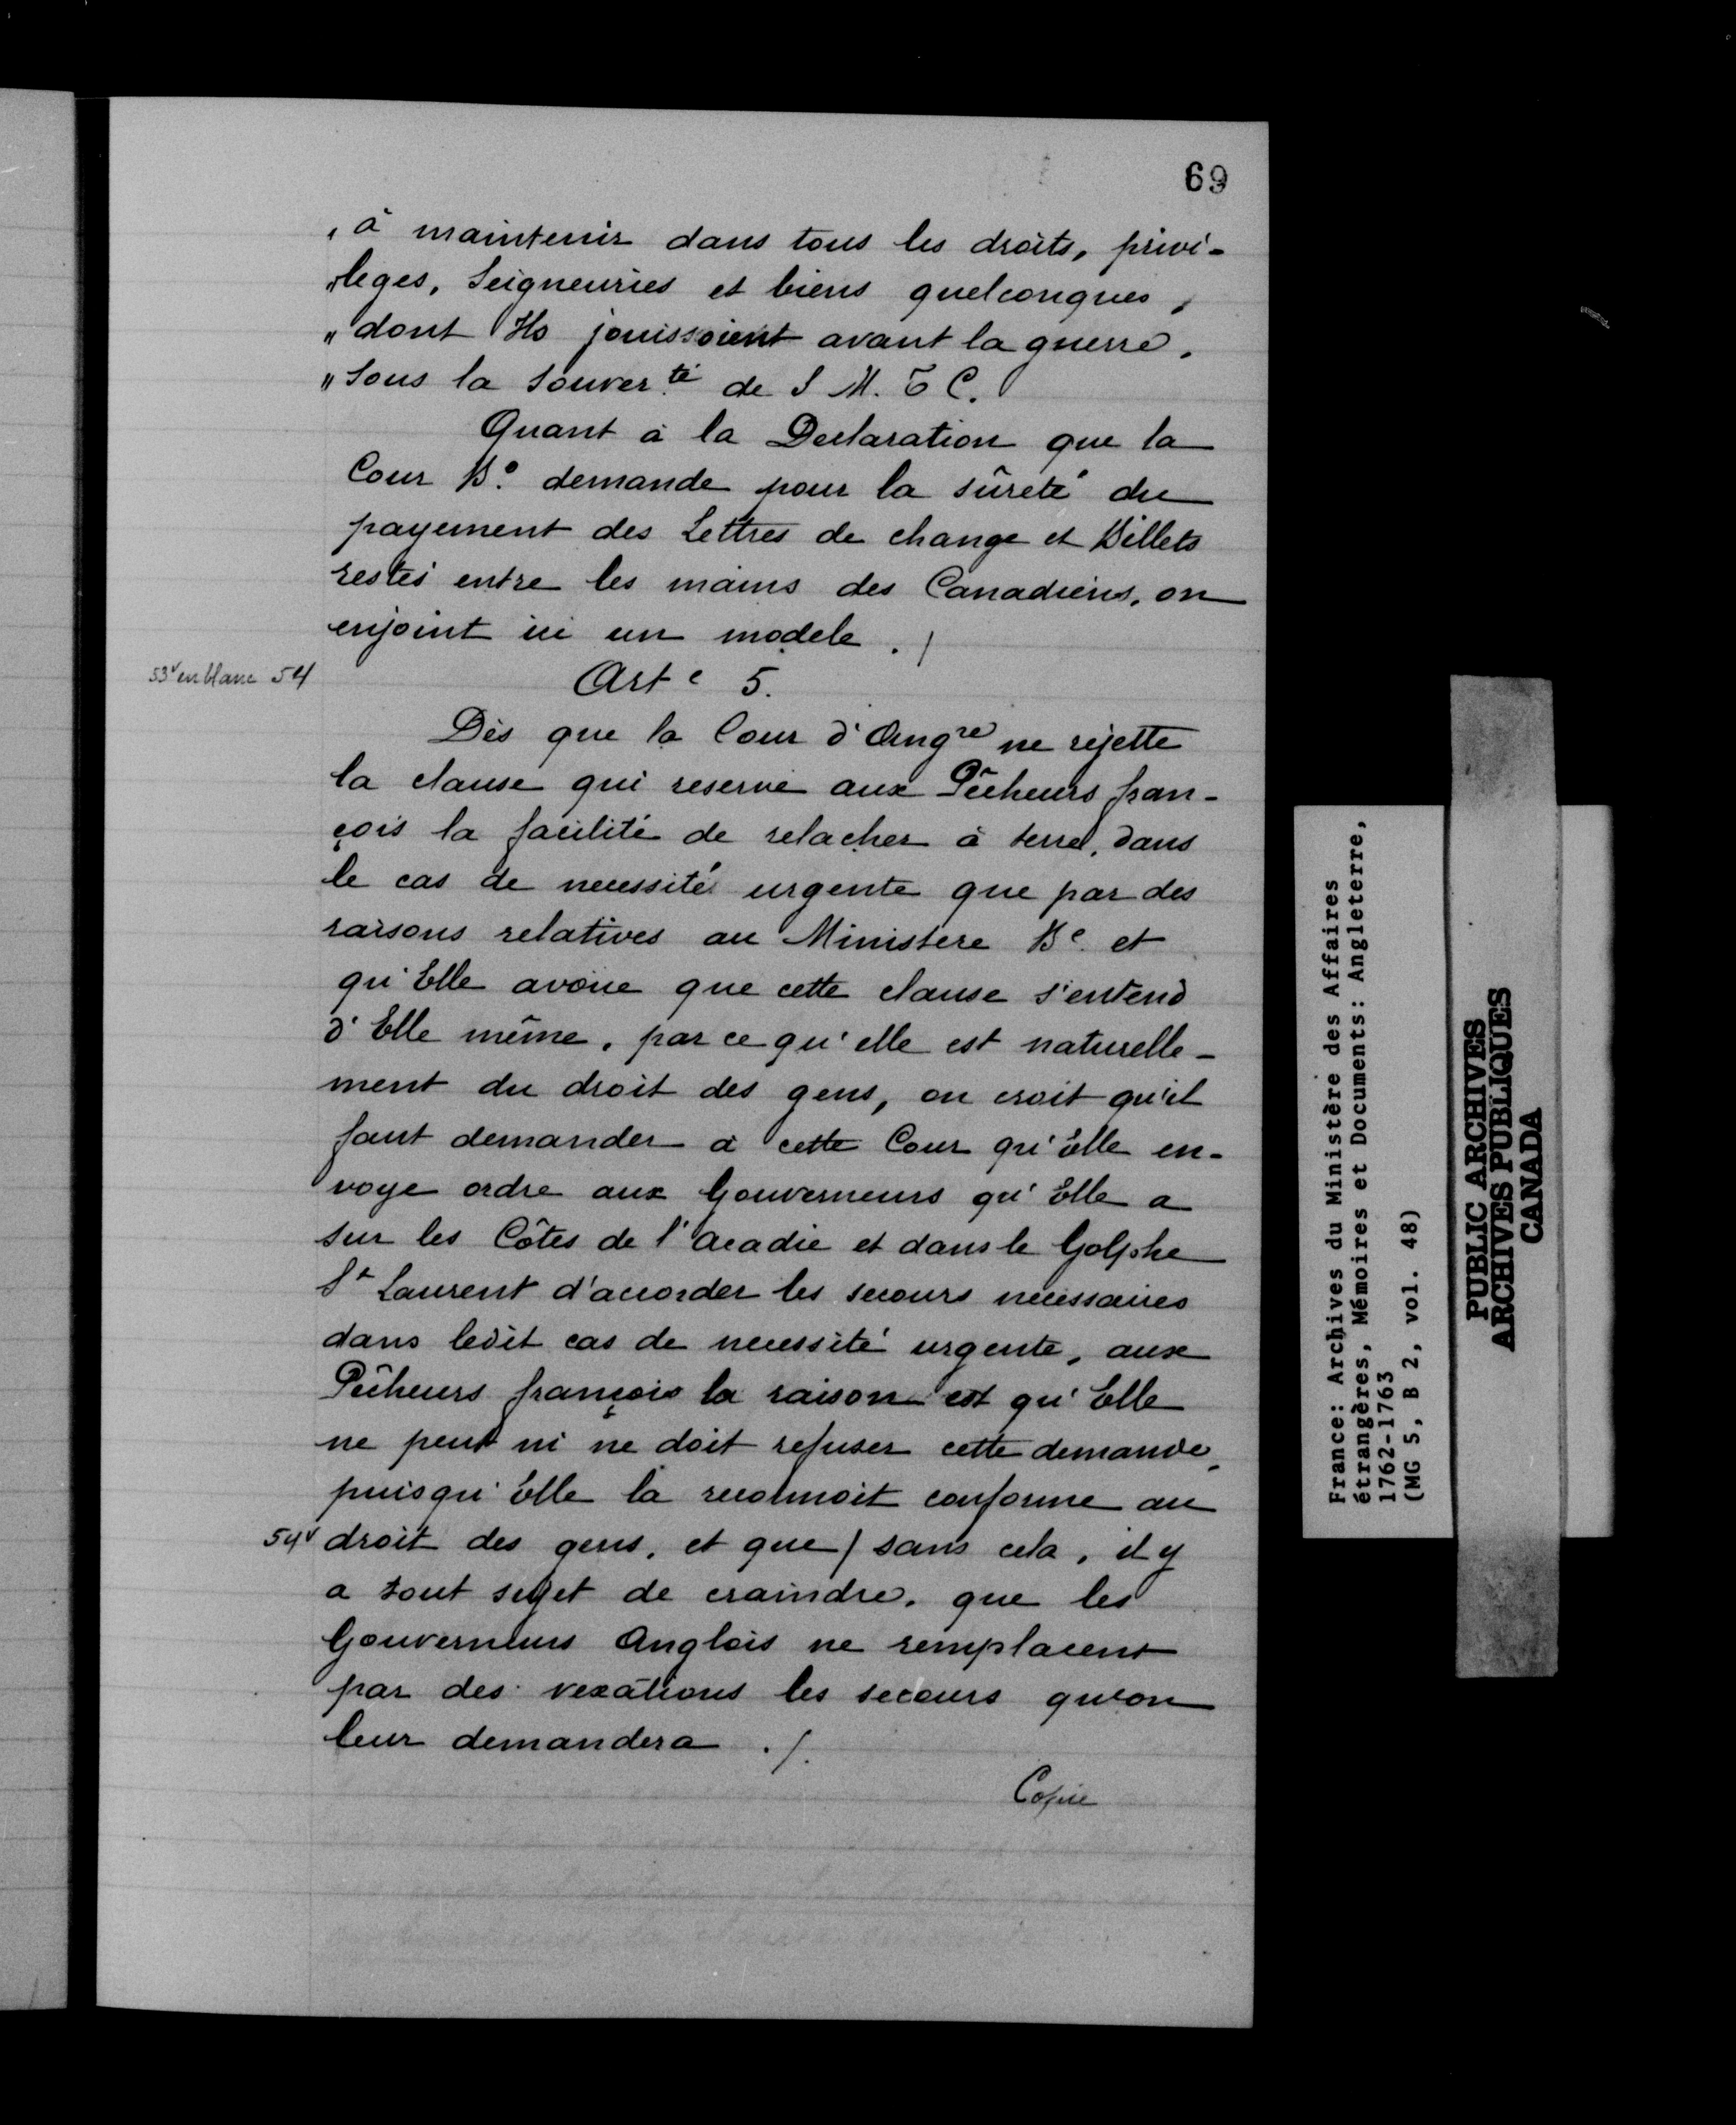 69
„ à maintenir dans tous les droits, privi-
„ leges, Seigneuries et biens quelconques,
„ dont Ils jouissoient avant la guerre,
„ sous la souver.té de S M. T C.
Quant à la Declaration que la
Cour B.e demande pour la sûreté du
payement des Lettres de change et Billets
restés entre les mains des Canadiens, on
enjoint ici un modele . /
53v en blanc 54
Art e 5.
Dès que la Cour d'Angre ne rejette
la clause qui reserve aux Pêcheurs fran-
çois la facilité de relacher à terre, dans
le cas de necessité urgente que par des
raisons relatives au Ministere B.e et
qu'Elle avoüe que cette clause s'entend
d'Elle même, par ce qu'elle est naturelle-
ment du droit des gens, on croit qu'il
faut demander à cette Cour qu'Elle en-
voye ordre aux Gouverneurs qu'Elle a
sur les Côtes de l'Acadie et dans le Golphe
St Laurent d'accorder les secours necessaires
dans ledit cas de necessité urgente, aux
Pêcheurs françois la raison est qu'Elle
ne peut ni ne doit refuser cette demande,
puisqu'Elle la reconnoit conforme au
54v droit des gens, et que / sans cela, il y
a tout sujet de craindre, que les
Gouverneurs Anglois ne remplacent
par des vexations les secours qu'on
leur demandera ./.
Copie
France: Archives du Ministère des Affaires
étrangères, Mémoires et Documents: Angleterre,
1762-1763
(MG 5, B 2, vol. 48)
PUBLIC ARCHIVES
ARCHIVES PUBLIQUES
CANADA